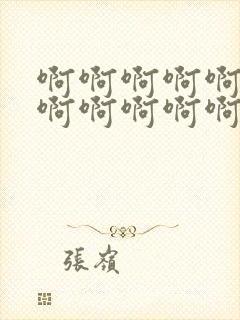 啊啊啊啊啊
啊啊啊啊啊
張嶺